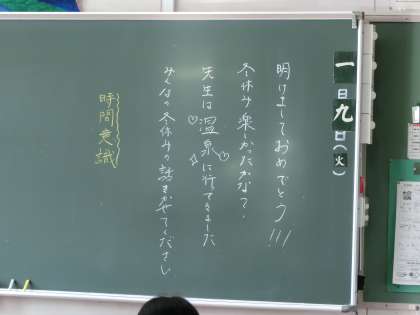 一日九日(火)
明けましておめでとう!!!
冬休み楽しかったかな?
先生は温泉に行てきました
みんなの冬休みの話きかせてください
時間意識